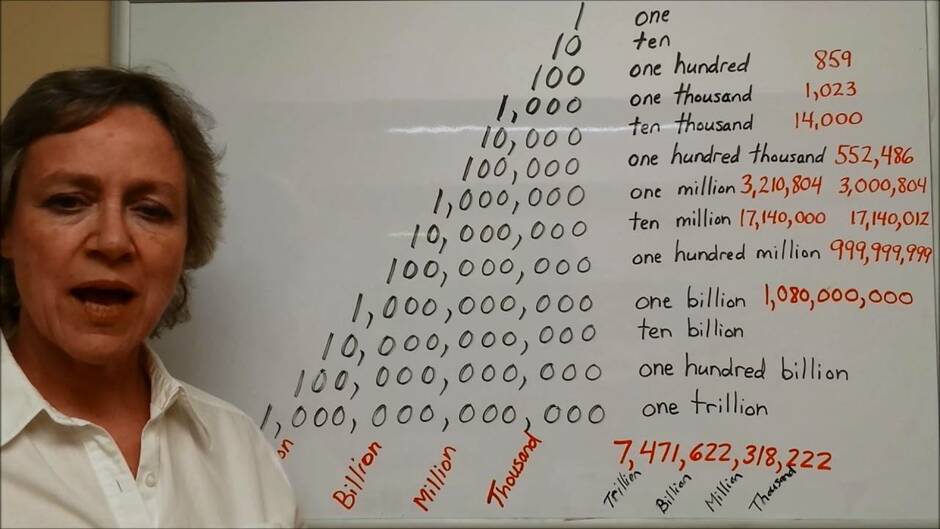 1 one
10 ten
100 one hundred 859
1,000 one thousand 1,023
10,000 ten thousand 14,000
100,000 one hundred thousand 552,486
1,000,000 one million 3,210,804 3,000,804
10,000,000 ten million 17,140,000 17,140,012
100,000,000 one hundred million 999,999,999
1,000,000,000 one billion 1,080,000,000
10,000,000,000 ten billion
100,000,000,000 one hundred billion
1,000,000,000,000 one trillion
Billion Million Thousand
7,471,622,318,222
Trillion Billion Million Thousand